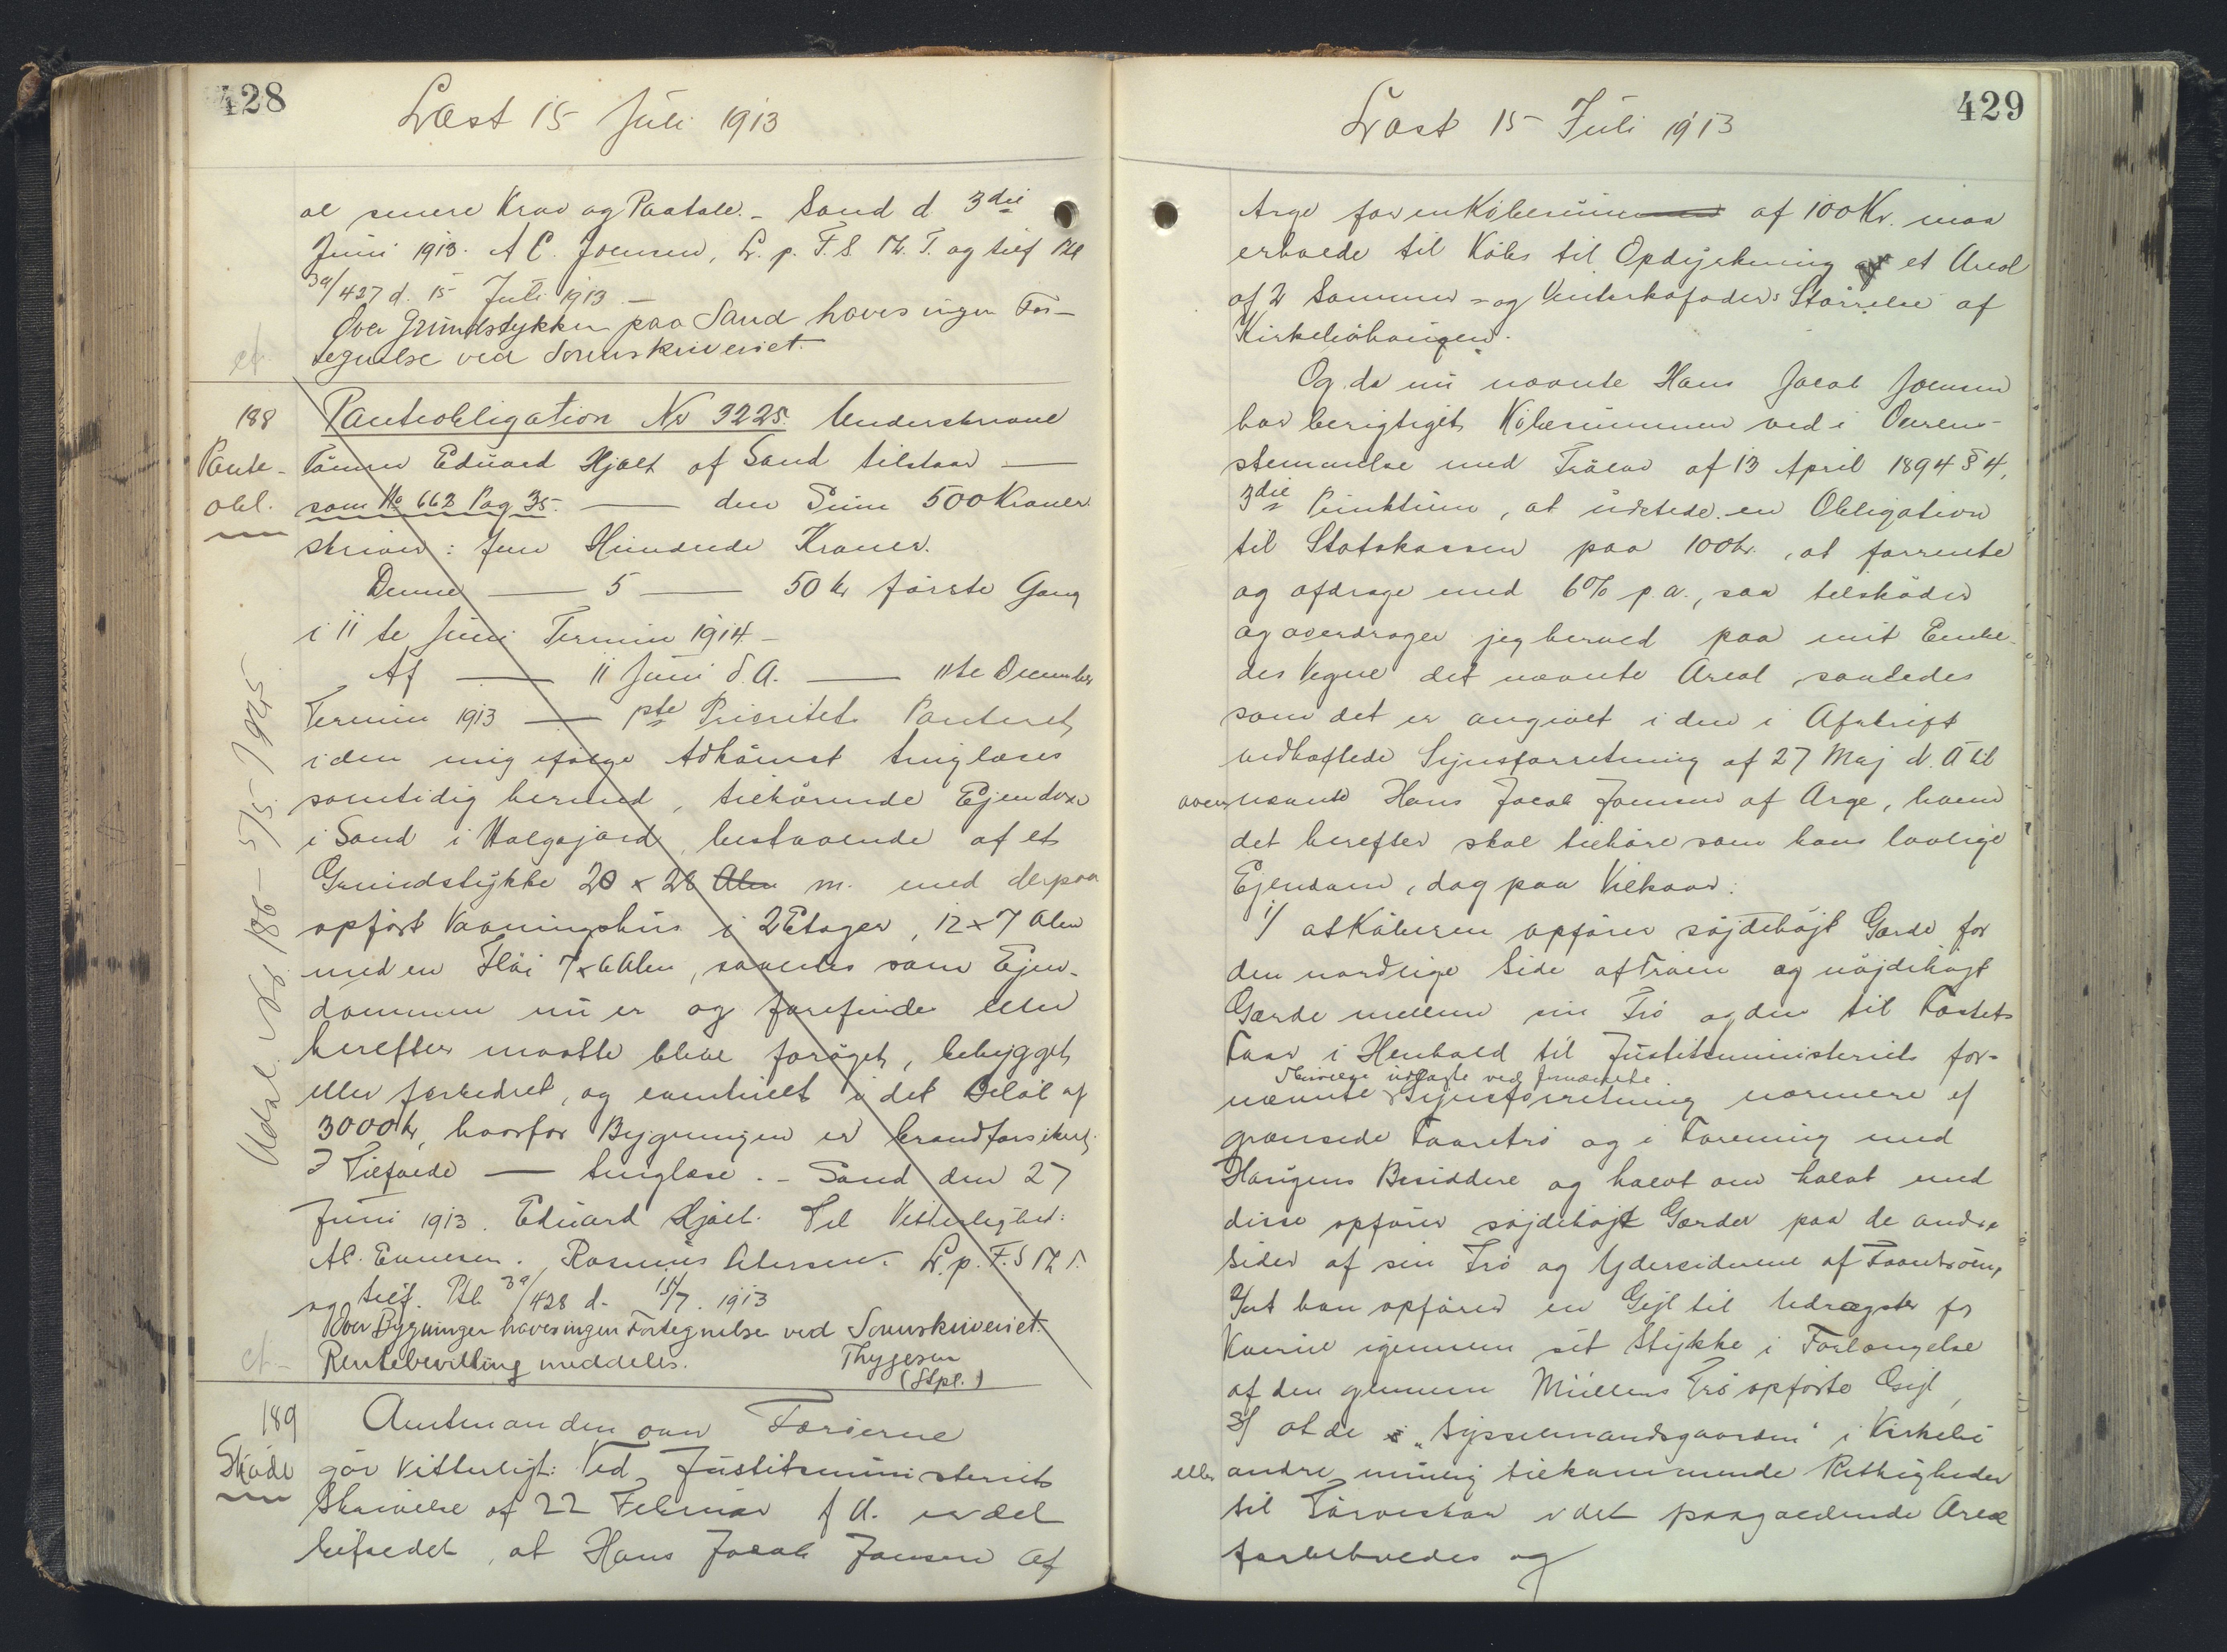 428
Læst 15 Juli 1913
al senere Krav og Paatale. – Sand d 3die
Juni 1913. A C. Joensen, L. p. F. S. Th. T. og tilf Ptb
39/427 d. 15 Juli 1913 –
Over Grundstykker paa Sand haves ingen For-
tegnelse ved Sorenskriveriet.
ct
188
Pante-
obl.
Panteobligation No 3225. Underskrevne
Tömrer Eduard Hjalt af Sand tilstaar —
som No 662 Pag 35. — den Sum 500 Kroner
skriver: fem Hundrede Kroner.
Denne — 5 — 50 Kr förste Gang
i 11te Juni Termin 1914 –
Af — 11 Juni d. A. — 11te December
Termin 1913 — pte Prioritets Panteret
i den mig ifölge Adkomst tinglæses
samtidig hermed, tilhörende Ejendom
i Sand i Valgsjord, bestaaende af et
Grundstykke 20 x 28 Alen m. med derpaa
opført Vaaningshus i 2 Etager, 12 x 7 Alen
med en Flöi 7 x 6 Alen, saaledes som Ejen-
dommen nu er og forefindes eller
herefter maatte blive foröget, bebygget
eller forbedret, og eventuelt i det Belöb af
3000 Kr, hvorfor Bygningen er brandforsikret.
I Tilfælde — tinglæse. – Sand den 27
Juni 1913. Eduard Hjalt. Til Vitterlighed:
A C. Evensen. Rasmus Petersen. L. p. F. S Th T.
og tilf. Ptb. 39/428 d. 15/7. 1913
Over Bygninger haves ingen Fortegnelse ved Sorenskriveriet.
ct –
Rentebevilling meddeles.
Thygesen
(Stpl.)
Udsl. No 186 – 5/5 – 1925
189
Skøde
Amtmanden over Færöerne
gör Vitterligt: Ved Justitsministeriets
Skrivelse af 22 Februar f A. er det
bifaldet, at Hans Jacob Joensen af
429
Læst 15 Juli 1913
Arge for en Köbesum af 100 Kr. maa
erholde til Köbs til Opdyrkning et Areal
af 2 Sommer- og Vinterkofoders Störrelse af
Kirkebøhaugen.
Og da nu nævnte Hans Jacob Joensen
har berigtiget Köbesummen ved i Overens-
stemmelse med Trölov af 13 April 1894 § 4,
3die Punktum, at udstede en Obligation
til Statskassen paa 100 kr., at forrente
og afdrage med 6% p. a., saa tilsköder
og overdrager jeg herved paa mit Embe-
des Vegne det nævnte Areal saaledes
som det er angivet i den i Afskrift
vedhæftede Synsforretning af 27 Maj d. A til
ovennævnte Hans Jacob Joensen af Arge, hvem
det herefter skal tilhöre som hans lovlige
Ejendom, dog paa Vilkaar:
1/ at Köberen opförer söjdehöjt Gærde for
den nordlige Side af Tröen og nöjdehöjt
Gærde mellem sin Trö og den til Fæstets
Faar i Henhold til Justitsministeriets for-
Skrivelse udlagte ved fornævnte
nævnte Synsforretning nærmere af
grænsede Faaretrö og i Forening med
Haugens Besiddere og halvt om halvt med
disse opförer söjdehöjt Gærder paa de andre
Sider af sin Trö og Ydersiderne af Faaretröen,
2/ at han opförer en Gejl til Uddrægster for
Kvæg igennem sit Stykke i Forlængelse
af den gennem Müllers Trö opförte Gejl,
3/ at de i "Sysselmandsgaarden" i Kirkebö
eller andre mulig tilkommende Rettigheder
til Törveskær i det paagældende Areal
forbeholdes og